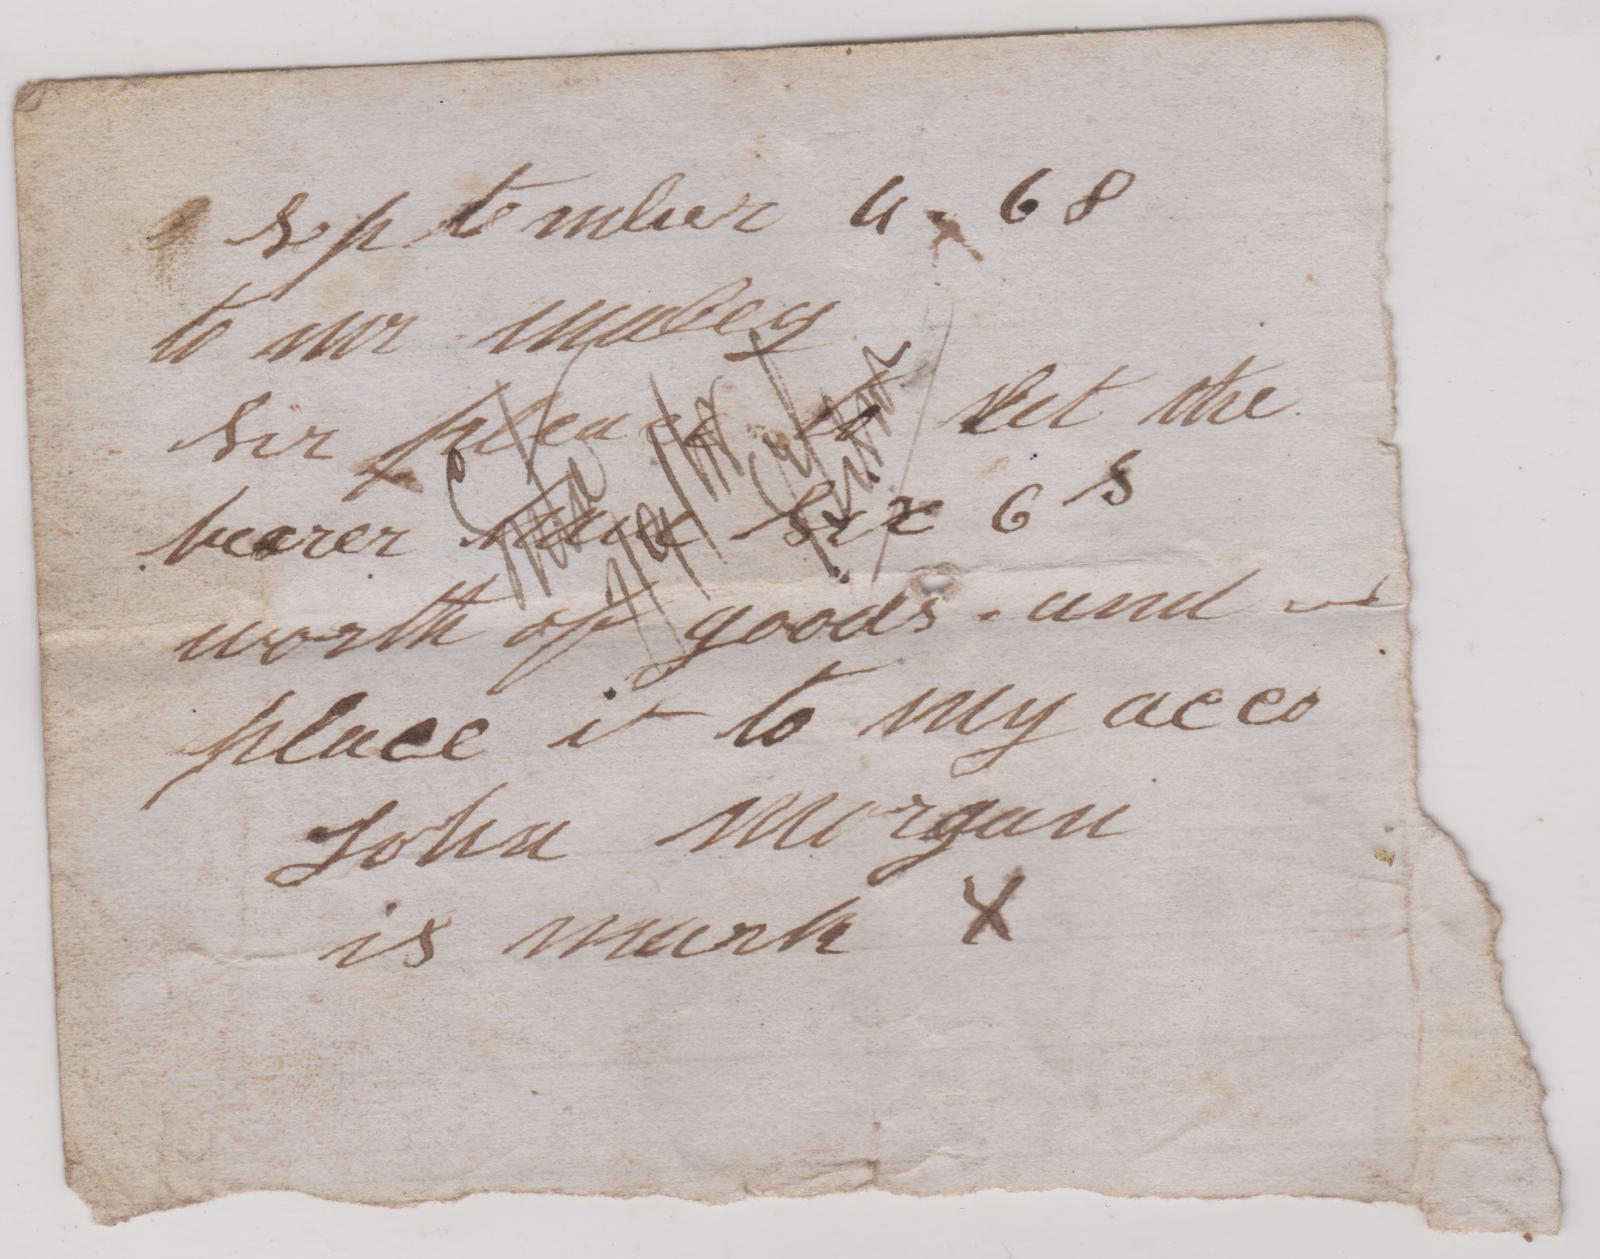 September 4. 68
to mr mabey
Sir please to let the
bearer have Six 6 s
worth of goods. and
place it to my acco
John Morgan
is mark X